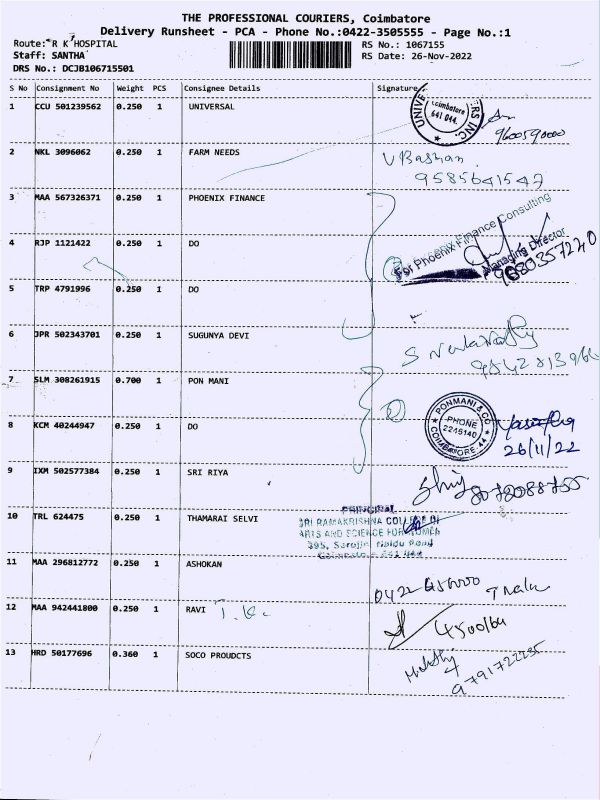 THE PROFESSIONAL COURIERS, Coimbatore
Delivery Runsheet - PCA - Phone No.:0422-3505555 - Page No.:1
Route: R K HOSPITAL
Staff: SANTHA
DRS No.: DCJB106715501
RS No.: 1067155
RS Date: 26-Nov-2022
S No Consignment No Weight PCS Consignee Details Signature
1 CCU 501239562 0.250 1 UNIVERSAL
Coimbatore
641 044.
9600590000
2 NKL 3096062 0.250 1 FARM NEEDS
V Bashan
9585641547
3 MAA 567326371 0.250 1 PHOENIX FINANCE
For Phoenix Finance Consulting
Managing Director
4 RJP 1121422 0.250 1 DO
5 TRP 4791996 0.250 1 DO
6 JPR 502343701 0.250 1 SUGUNYA DEVI
7 SLM 308261915 0.700 1 PON MANI
PONMANI & CO
PHONE
2245140
COIMBATORE 44
26/11/22
8 KCM 40244947 0.250 1 DO
9 IXM 502577384 0.250 1 SRI RIYA
10 TRL 624475 0.250 1 THAMARAI SELVI
PRINCIPAL
SRI RAMAKRISHNA COLLEGE OF
ARTS AND SCIENCE FOR WOMEN
395, Sarojini Naidu Road
Coimbatore - 641 044
11 MAA 296812772 0.250 1 ASHOKAN
12 MAA 942441800 0.250 1 RAVI
13 HRD 50177696 0.360 1 SOCO PROUDCTS
9791722235